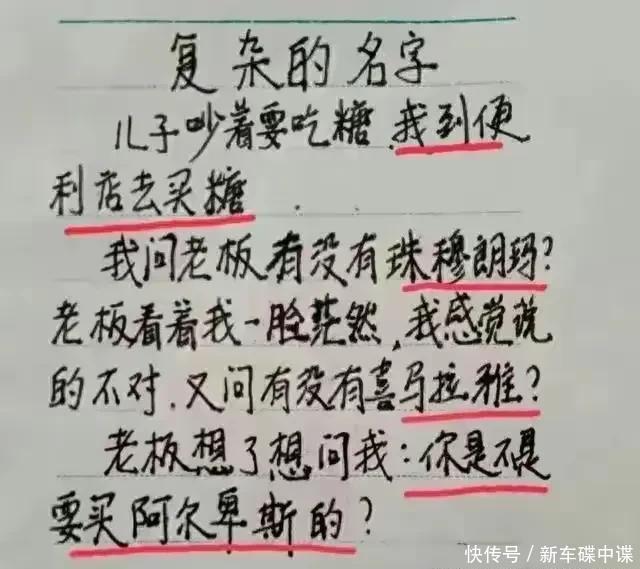 复杂的名字
儿子吵着要吃糖,我到便
利店去买糖.
我问老板有没有珠穆朗玛?
老板看着我一脸茫然,我感觉说
的不对,又问有没有喜马拉雅?
老板想了想问我:你是不是
要买阿尔卑斯的?
快传号/新车碟中谍